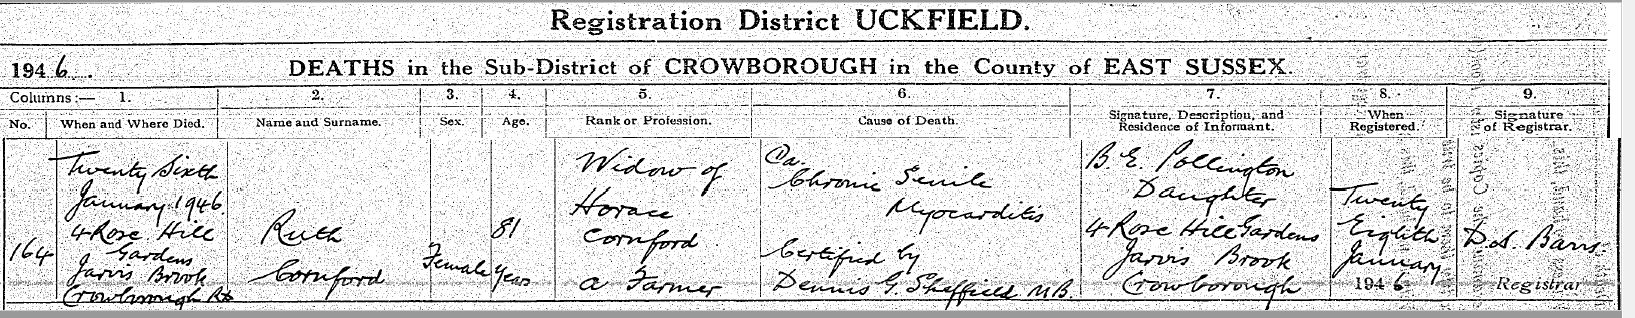 Registration District UCKFIELD.
1946. DEATHS in the Sub-District of CROWBOROUGH in the County of EAST SUSSEX.
Columns:— 1. 2. 3. 4. 5. 6. 7. 8. 9.
No. When and Where Died. Name and Surname. Sex. Age. Rank or Profession. Cause of Death. Signature, Description, and Residence of Informant. When Registered. Signature of Registrar.
164
Twenty Sixth
January 1946
4 Rose Hill
Gardens
Jarvis Brook
Crowborough
Ruth
Cornford
Female
81
years
Widow of
Horace
Cornford
a Farmer
Ca.
Chronic Senile
Myocarditis
Certified by
Dennis G. Sheffield M.B.
B. E. Pollington
Daughter
4 Rose Hill Gardens
Jarvis Brook
Crowborough
Twenty
Eighth
January
1946
Registrar